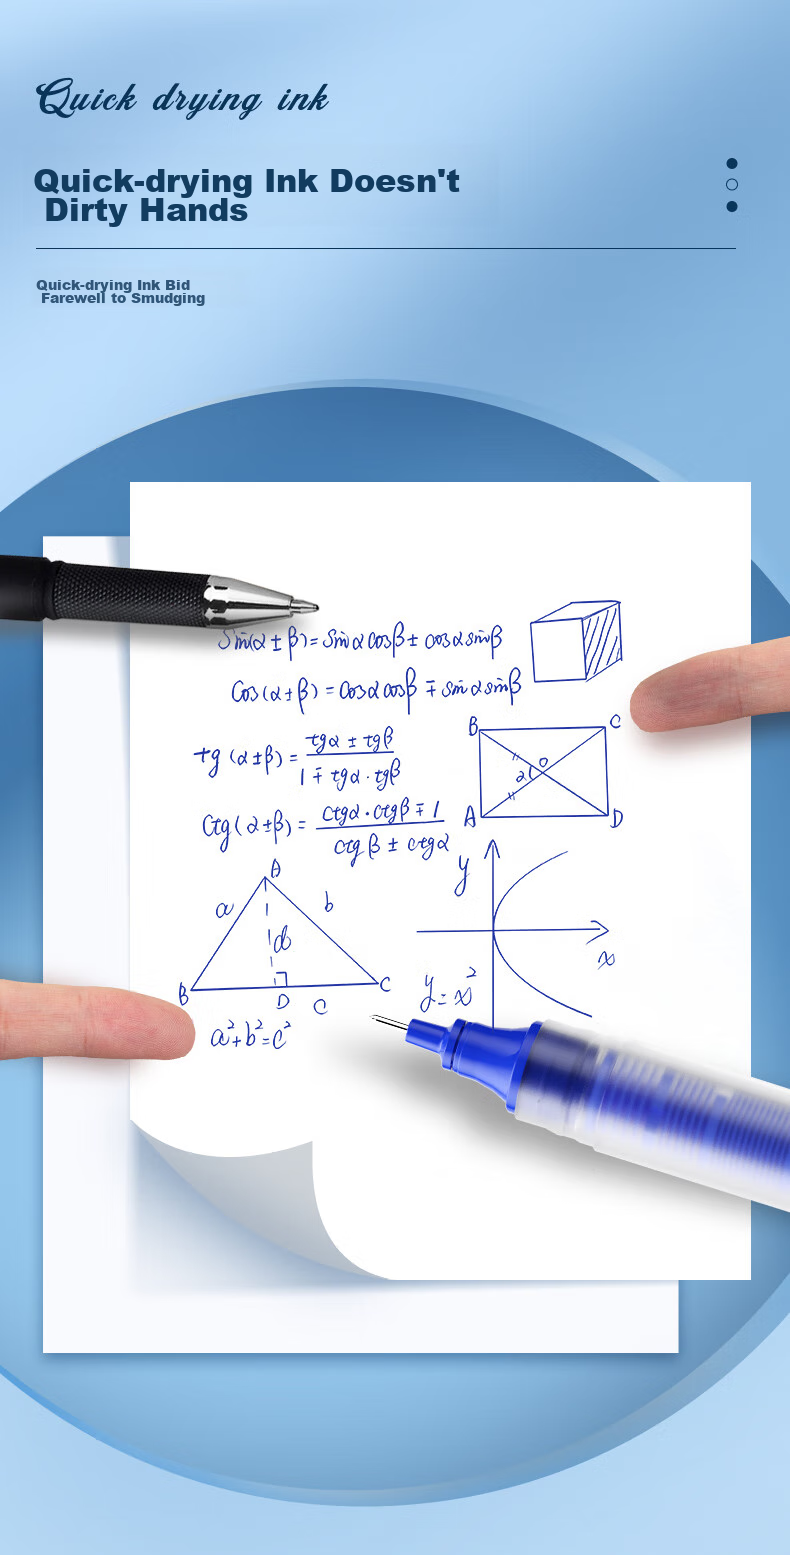 Quick drying ink
Quick-drying Ink Doesn't
Dirty Hands
Quick-drying Ink Bid
Farewell to Smudging
Sin(α ± β) = Sin α cos β ± cos α sin β
Cos (α ± β) = cos α cos β ∓ sin α sin β
tg (α ± β) = tgα ± tgβ
1 ∓ tgα · tgβ
B
C
O
2
A
D
Ctg (α ± β) = ctgα · ctgβ ∓ 1
ctgβ ± ctgα
A
a
b
d
B
D
C
c
a²+b²=c²
y
x
y=x²